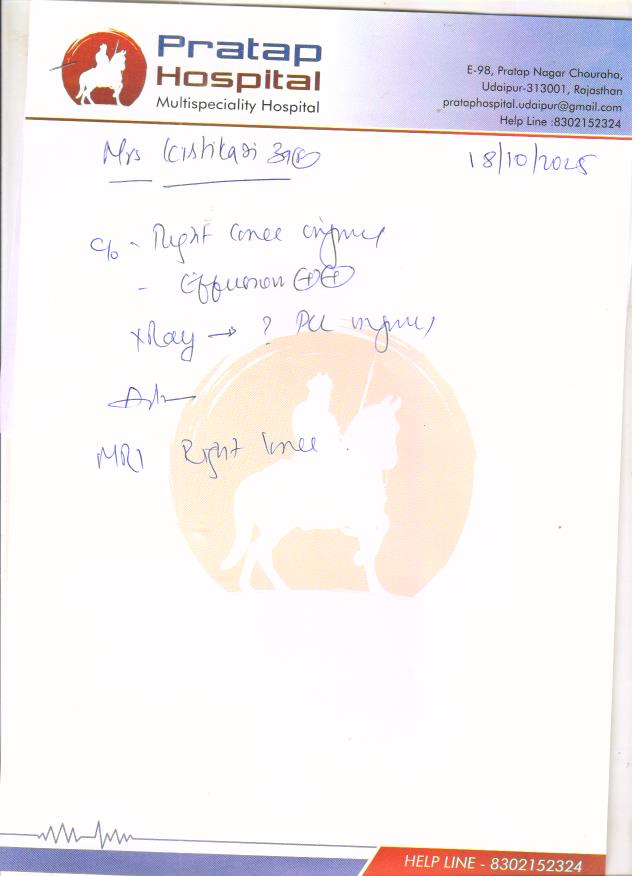 Pratap
Hospital
Multispeciality Hospital
E-98, Pratap Nagar Chouraha,
Udaipur-313001, Rajasthan
prataphospital.udaipur@gmail.com
Help Line :8302152324
Mrs
18/10/2025
c/o - Right knee injury
- Effusion ++
XRay → ? PCL injury
Adv
MRI Right knee
HELP LINE - 8302152324